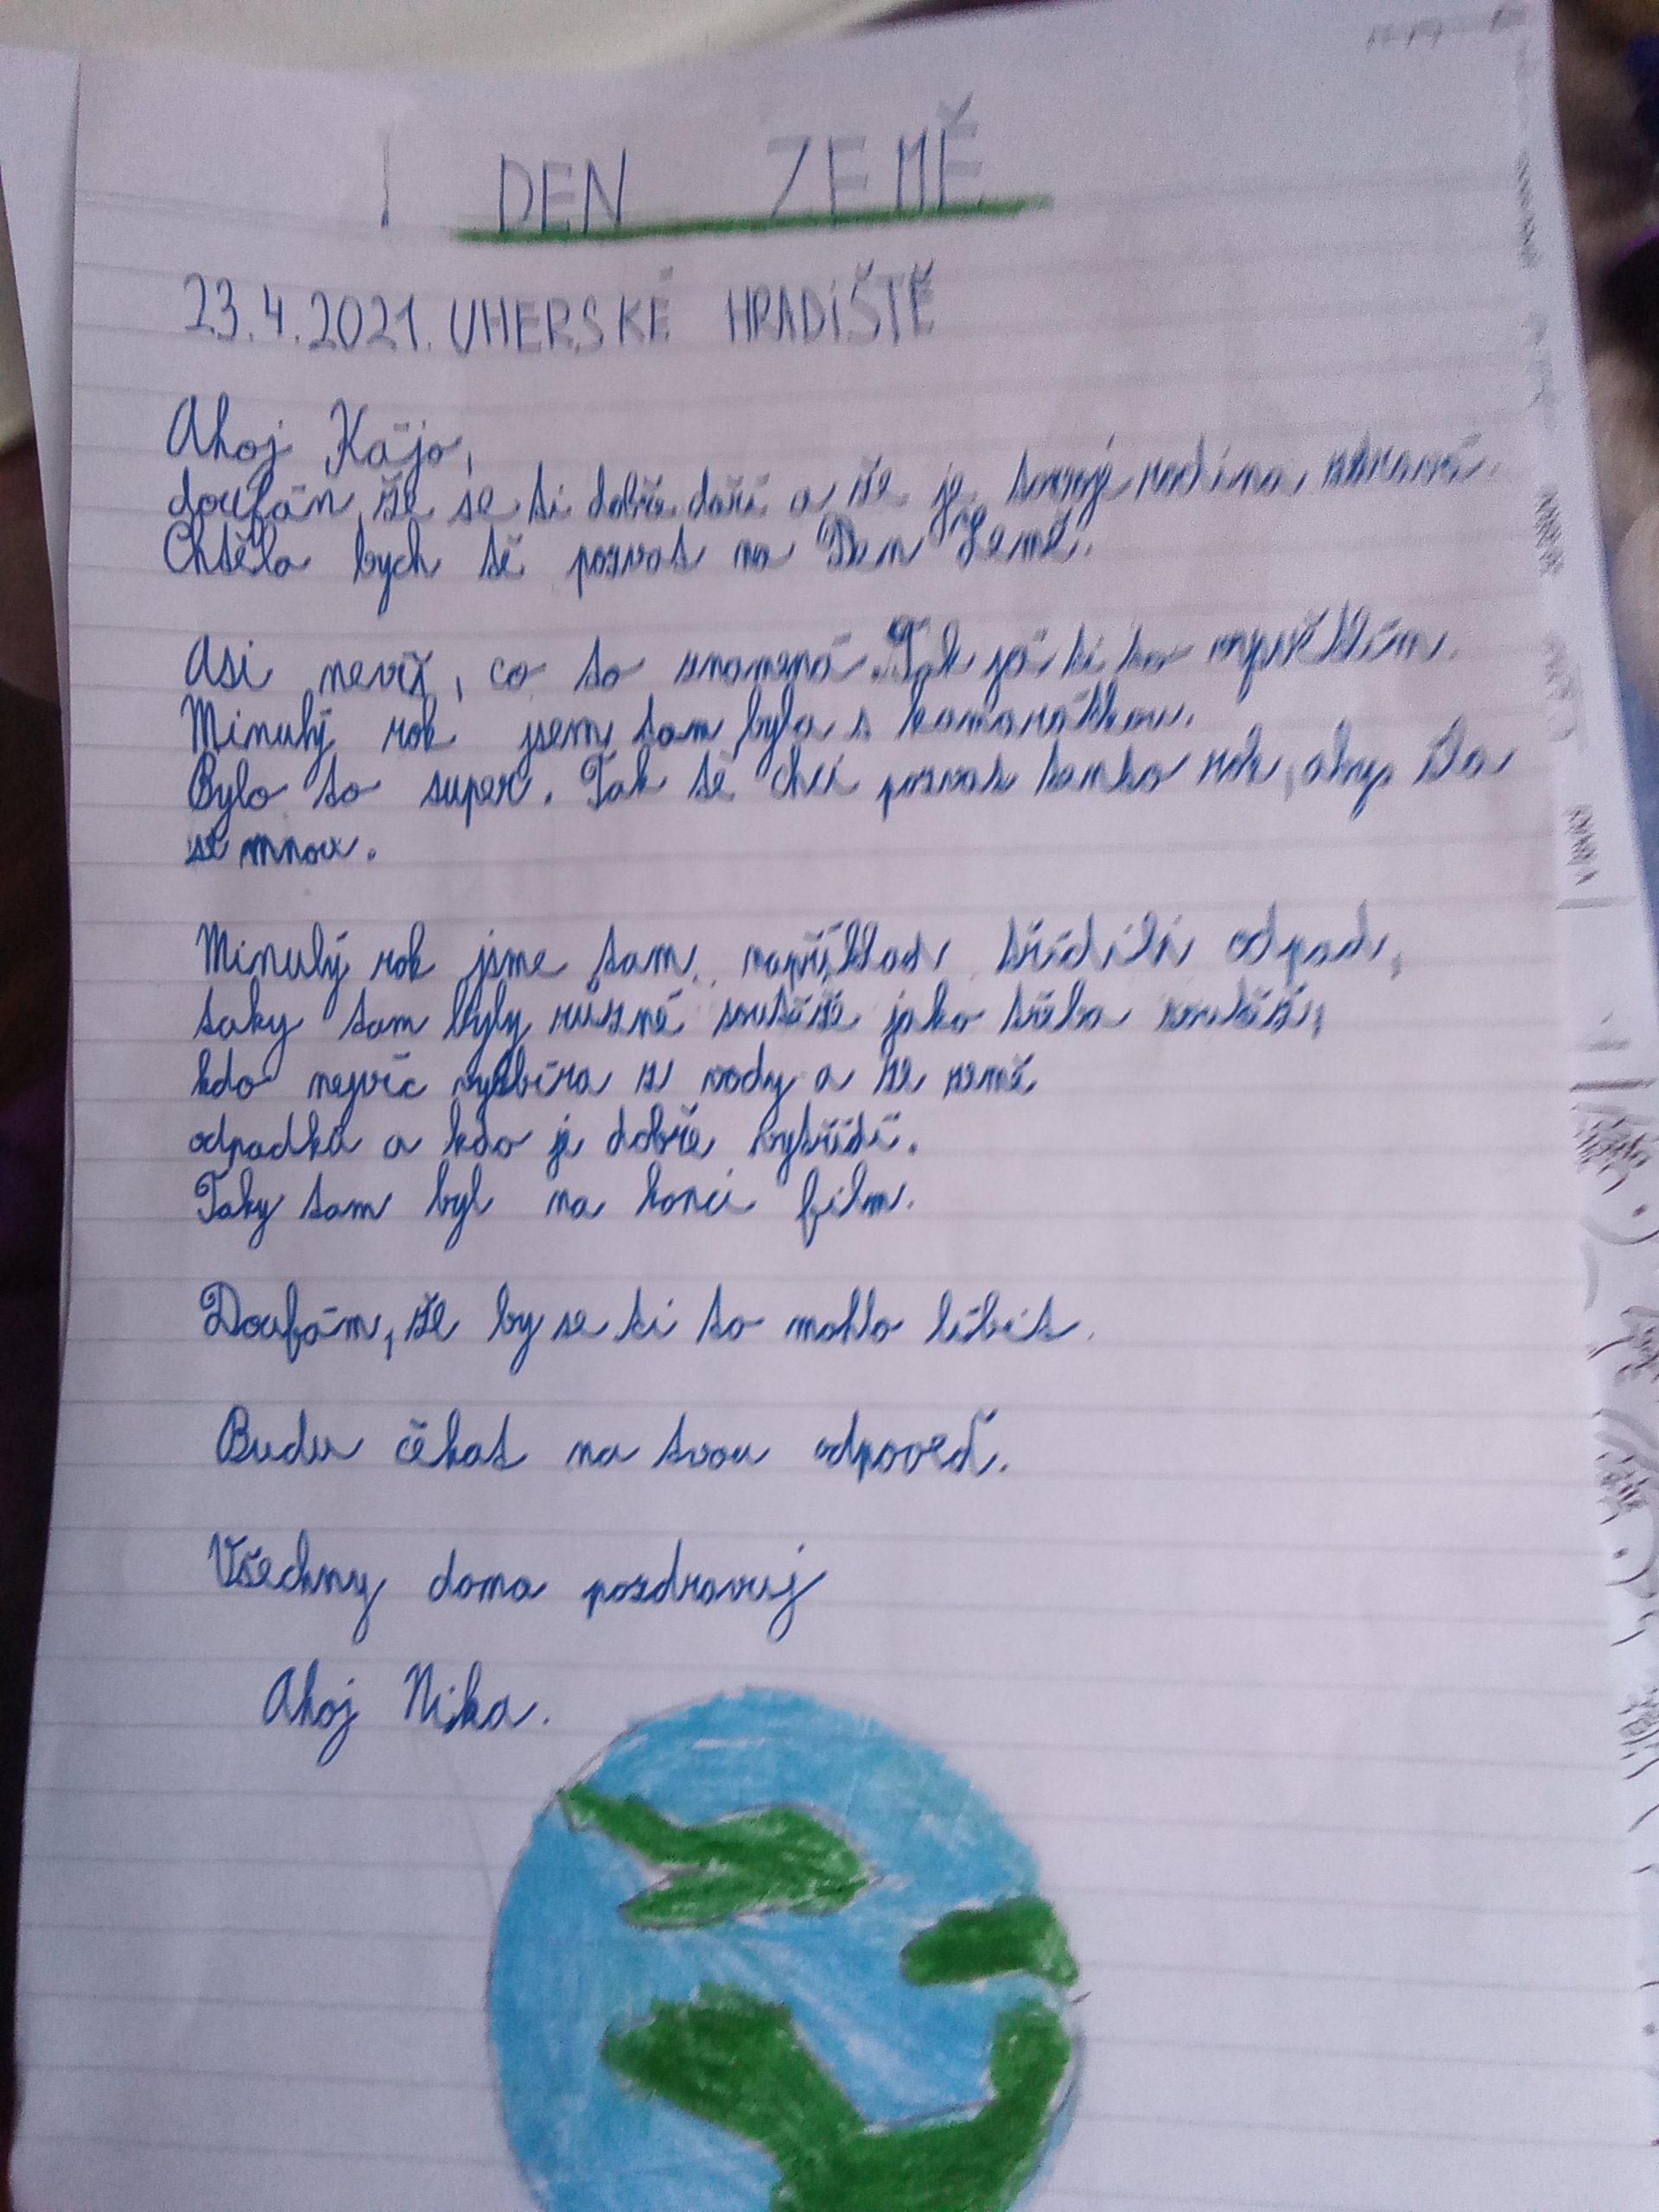 DEN ZEMĚ
23.4.2021. UHERSKÉ HRADiŠTĚ
Ahoj Kájo,
doufán, že se ti dobře daří a že je tvojí rodina zdravá.
Chtěla bych tě pozvat na Den Země.
Asi nevíš, co to znamená. Tak já ti to vysvětlím.
Minulý rok jsem tam byla s kamarátkou.
Bylo to super. Tak tě chci pozvat tento rok, aby šla
se mnou.
Minulý rok jsme tam například třídili odpad,
taky tam byly různé soutěže jako třeba soutěž,
kdo nejvíc vysbíra z vody a ze země
odpadků a kdo je dobře vytřídí.
Taky tam byl na konci film.
Doufám, že by se ti to mohlo líbit.
Budu čekat na tvou odpoveď.
Všechny doma pozdravuj
Ahoj Nika.